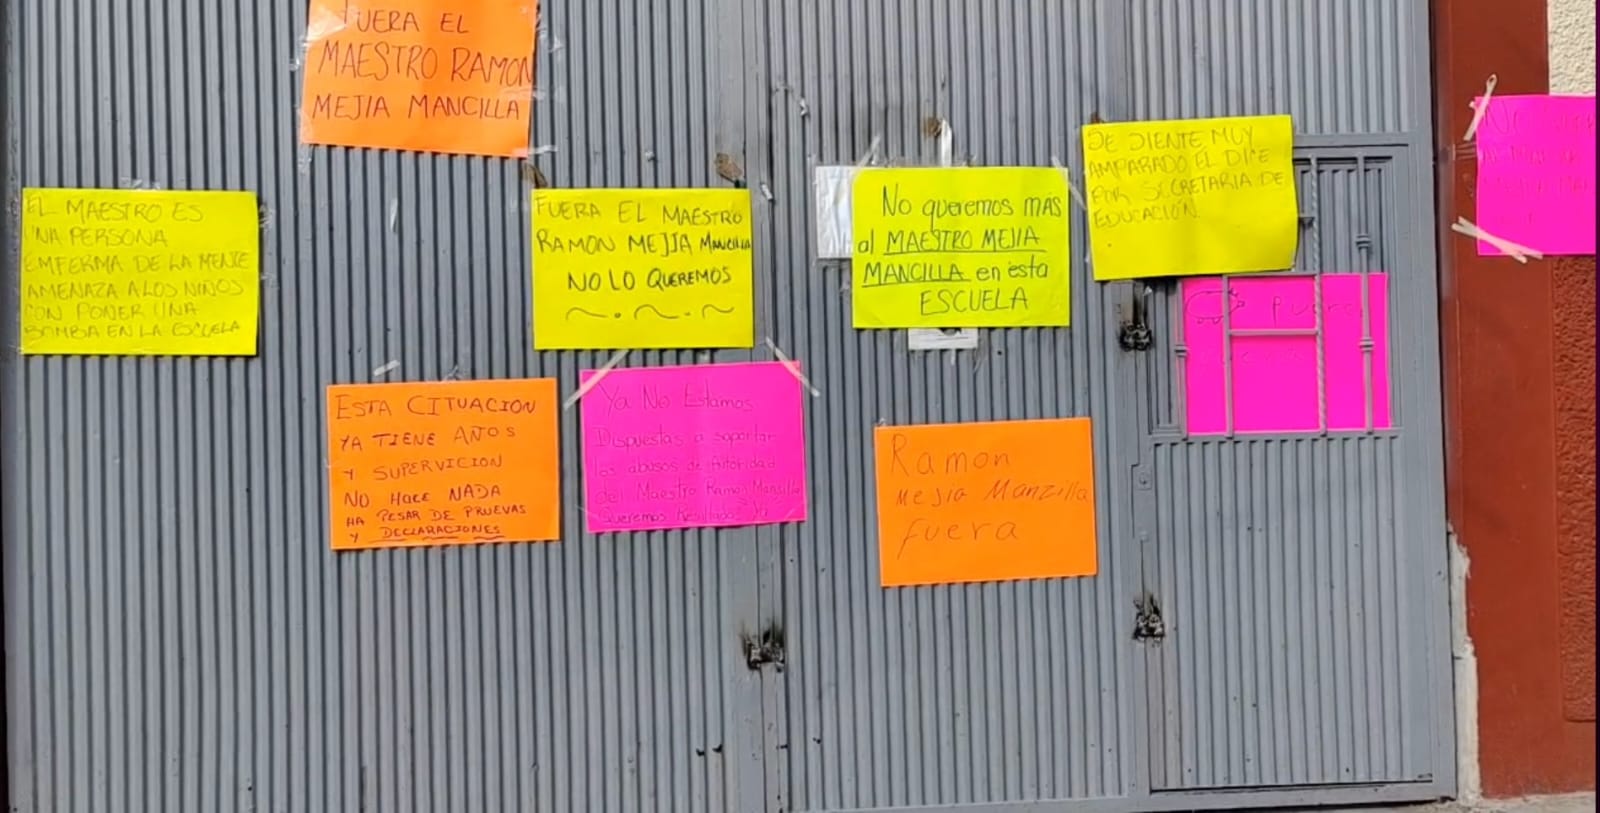 FUERA EL
MAESTRO RAMON
MEJIA MANCILLA
EL MAESTRO ES
UNA PERSONA
EMFERMA DE LA MENTE
AMENAZA A LOS NIÑOS
CON PONER UNA
BOMBA EN LA ESCUELA
FUERA EL MAESTRO
RAMON MEJIA MANCILLA
NO LO QUEREMOS
No queremos MÁS
al MAESTRO MEJIA
MANCILLA en esta
ESCUELA
SE SIENTE MUY
AMPARADO, EL DICE
POR SECRETARIA DE
EDUCACIÓN.
NO
Fuera
ESTA CITUACION
YA TIENE AÑOS
Y SUPERVICION
NO HACE NADA
HA PESAR DE PRUEVAS
Y DECLARACIONES
Ya No Estamos
Dispuestas a soportar
los abusos de Autoridad
del Maestro Ramon Mansilla
Queremos Resultados Ya
Ramon
Mejia Manzilla
Fuera